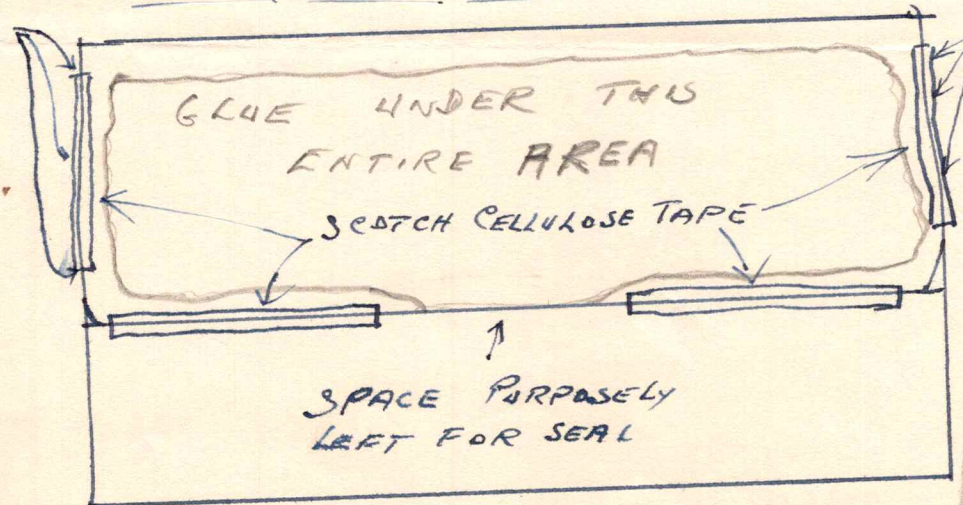 GLUE UNDER THIS
ENTIRE AREA
SCOTCH CELLULOSE TAPE
SPACE PURPOSELY
LEFT FOR SEAL